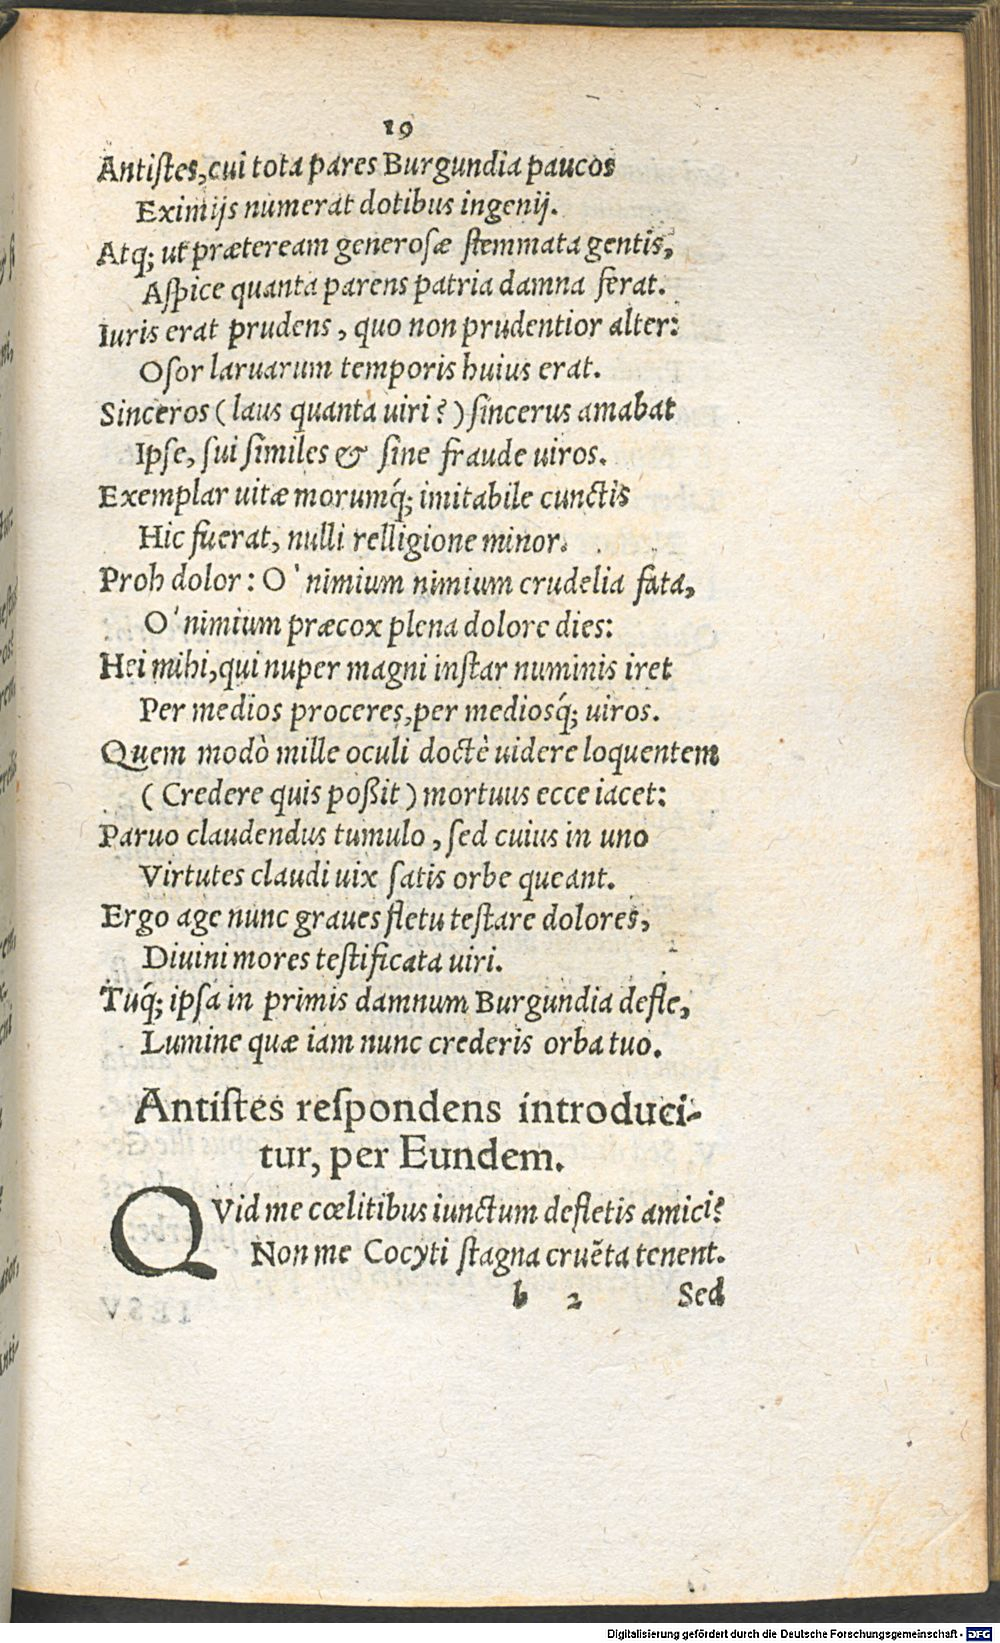 19
Antiſtes, cui tota pares Burgundia paucos
Eximijs numerat dotibus ingenij.
Atq; ut præteream generoſæ ſtemmata gentis,
Aſpice quanta parens patria damna ferat.
Iuris erat prudens, quo non prudentior alter:
Oſor laruarum temporis huius erat.
Sinceros (laus quanta uiri?) ſincerus amabat
Ipſe, ſui ſimiles & ſine fraude uiros.
Exemplar uitæ morumq́; imitabile cunctis
Hic fuerat, nulli relligione minor.
Proh dolor: O' nimium nimium crudelia fata,
O' nimium præcox plena dolore dies:
Hei mihi, qui nuper magni inſtar numinis iret
Per medios proceres, per mediosq́; uiros.
Quem modò mille oculi doctè uidere loquentem
(Credere quis poßit) mortuus ecce iacet:
Paruo claudendus tumulo, ſed cuius in uno
Virtutes claudi uix ſatis orbe queant.
Ergo age nunc graues fletu teſtare dolores,
Diuini mores teſtificata uiri.
Tuq́; ipſa in primis damnum Burgundia defle,
Lumine quæ iam nunc crederis orba tuo.
Antiſtes reſpondens introduci-
tur, per Eundem.
QVid me cœlitibus iunctum defletis amici?
Non me Cocyti ſtagna cruẽta tenent.
b 2 Sed
Digitalisierung gefördert durch die Deutsche Forschungsgemeinschaft - DFG